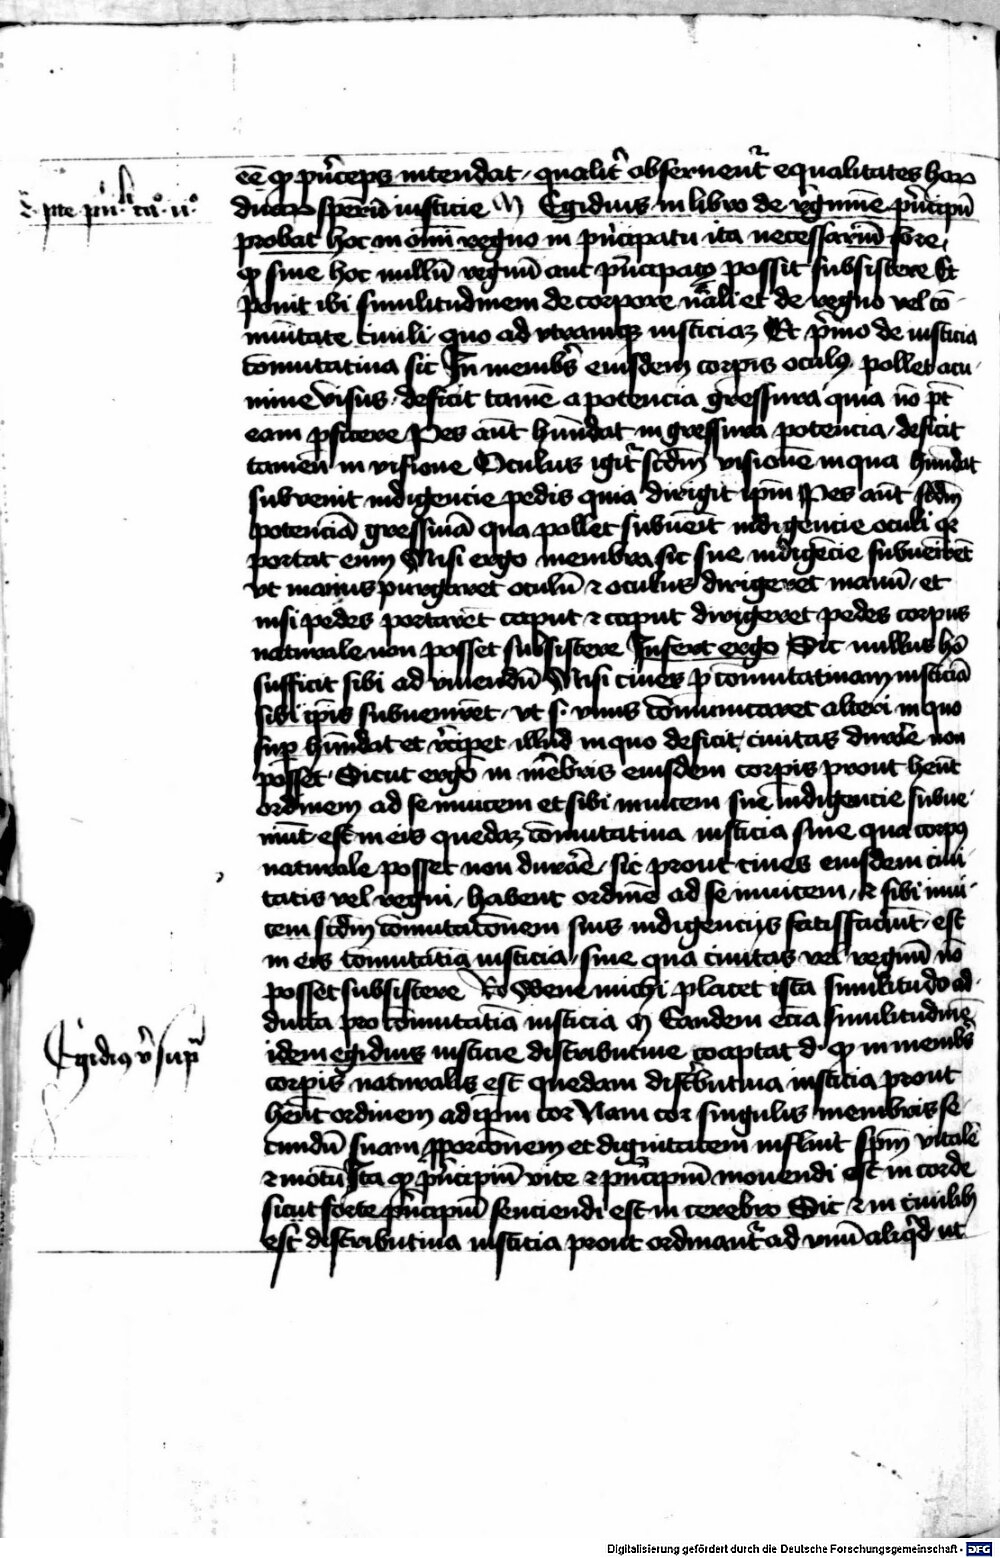 eē qp pn̄ceps intendat, qualit̄ obseruent̄ equalitates har
p̄te pn̄ li ca° 11°
duar sperū iusticie M Egidius in libro de regimīe pn̄cipū
probat hoc in om̄i regno in pn̄cipatu ita necessariū fore,
qp sine hoc nullū regnū aut pn̄cipatꝰ possit subsistere Et
ponit ibi similitudinem de corpore nāli et de regno vel cō
mūitate ciuili quo ad vtramqꝫ iusticiaꝫ Et p̄mo de iusticia
cōmutatiua sic In membr̄ eiusdem corpis oculꝰ pollet acu
mine visus, deficit tamē a potencia gressiua quia nō pt̄
eam pficere Pes aūt hūndat in gressiua potencia, deficit
tamen in visione Oculus igit̄ scdm̄ visionē in qua hūndat
subuenit indigencie pedis quia dirigit ipm̄ Pes aūt scdm̄
potenciā gressiuā qua pollet subuēit indigencie oculi qr
portat eum Nisi ergo membra sic sue indigēcie subuēirēt
vt manus purgaret oculū ⁊ oculus dirigeret manū, et
nisi pedes portarēt caput ⁊ caput dirigeret pedes corpus
naturale non posset subsistere Infert ergo Sic nullus hō
sufficit sibi ad viuendū Nisi ciues p cōmutatiuam iusticiā
sibi ip̄is subuenirēt, vt s. vnus cōmunicaret alteri in quo
sup hūndat et r̄cipet illud in quo deficit, ciuitas durare non
posset. Sicut ergo in mēbris eiusdem corpis prout hēnt
ordinem ad se inuicem et sibi inuicem sue indigencie subue
niūt est in eis quedaꝫ cōmutatiua iusticia sine qua corpꝰ
naturale posset non durare, sic prout ciues eiusdem ciui
tatis vel regni, habent ordinē ad se inuicem, ⁊ sibi inui
cem scdm̄ cōmutacōnem suis indigencijs satisfaciūt, est
in eis cōmutatīa iusticia, sine qua ciuitas vel regnū nō
posset subsistere Ro Bene michi placet ista similitudo ad
ducta pro cōmutatīa iusticia M Eandem eciā similitudinē
Egidiꝰ v̄ sup̄
idem egidius iusticie distributiue coaptat d. qp in membr̄
corpis naturalis est quedam distbutiua iusticia prout
hēnt ordinem ad ip̄m cor Nam cor singulis membris se
cundū suam pporcōnem et dignitatem influit spm̄ vitalē
⁊ motū Ita qp pn̄cipiū vite ⁊ pn̄cipiū mouendi est in corde
sicut forte pn̄cipiū senciendi est in cerebro Sic ⁊ in ciuilibꝰ
est distributiua iusticia prout ordinant̄ ad vnū aliqd ut
Digitalisierung gefördert durch die Deutsche Forschungsgemeinschaft - DFG